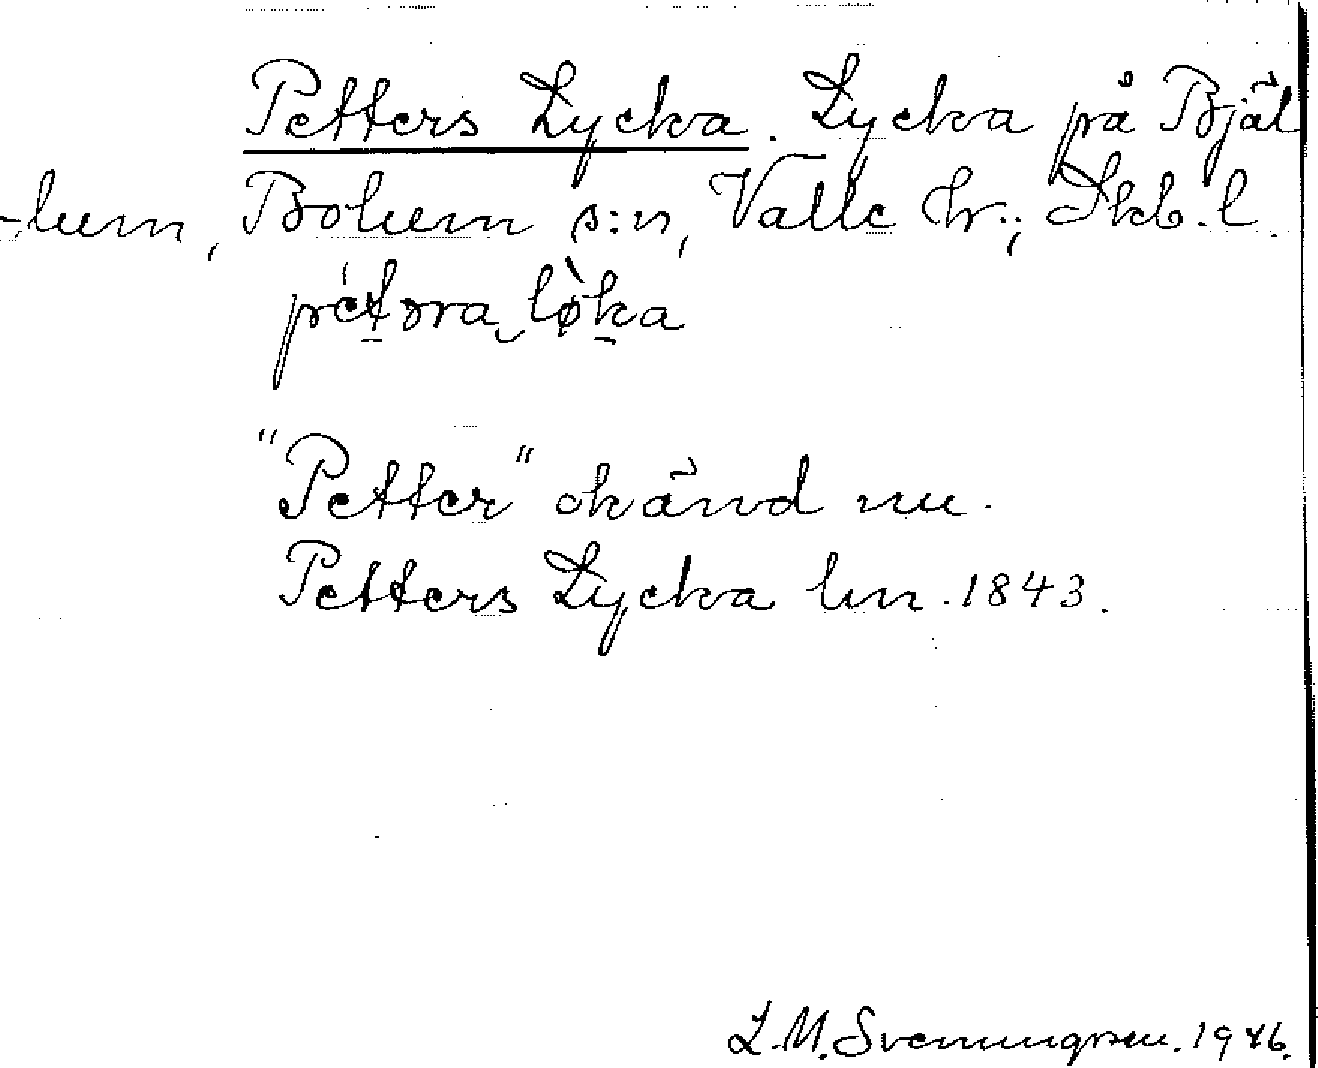 Petters Lycka. Lycka på Bjäl
-lum, Bolum s:n, Valle hr., Skb. l.
"Petter" okänd nu.
Petters Lycka lm. 1843.
L.M. Svenungsson. 1946.